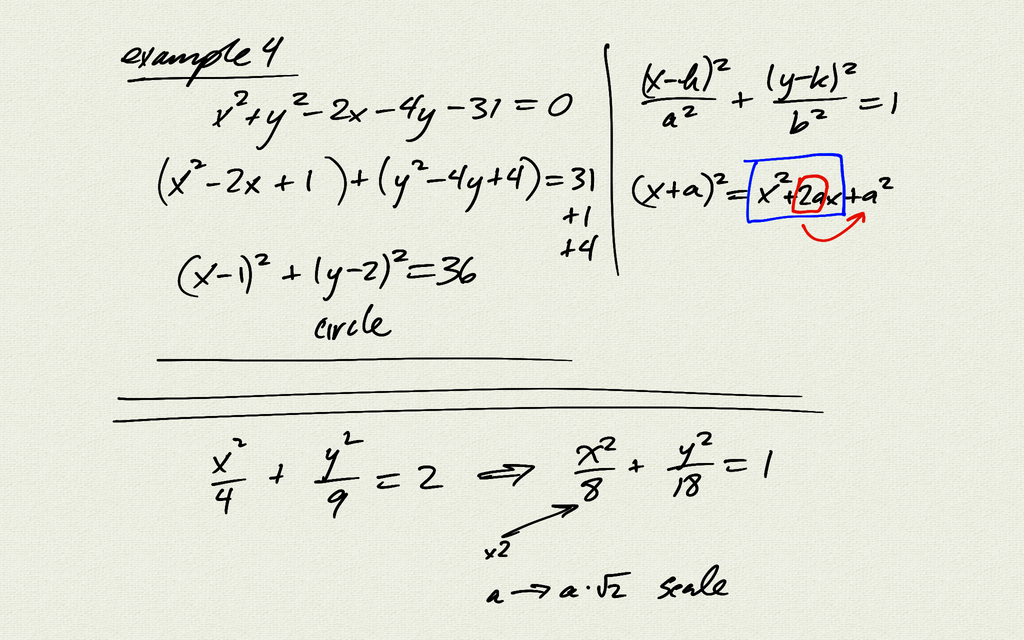 example 4
x² + y² - 2x - 4y - 31 = 0
(x² - 2x + 1 ) + (y² - 4y + 4) = 31
+1
+4
(x-1)² + (y-2)² = 36
circle
(x-h)²/a² + (y-k)²/b² = 1
(x+a)² = x² + 2ax + a²
x²/4 + y²/9 = 2 ⇔ x²/8 + y²/18 = 1
x2
a → a·√2 scale